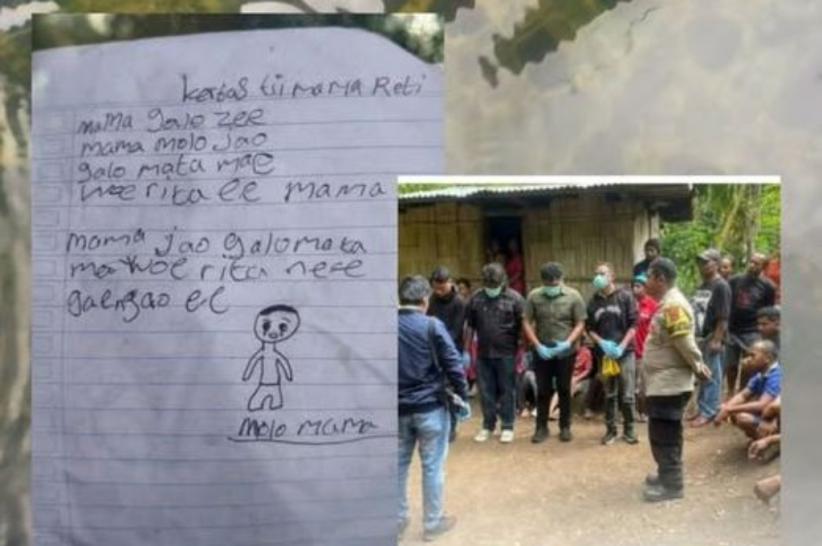 Kertas tii mama Reti
mama galo zee
mama molo jao
galo mata mae
woe rita ee mama
mama jao galo mata
mae woe rita nee
gae ngao ee
molo mama